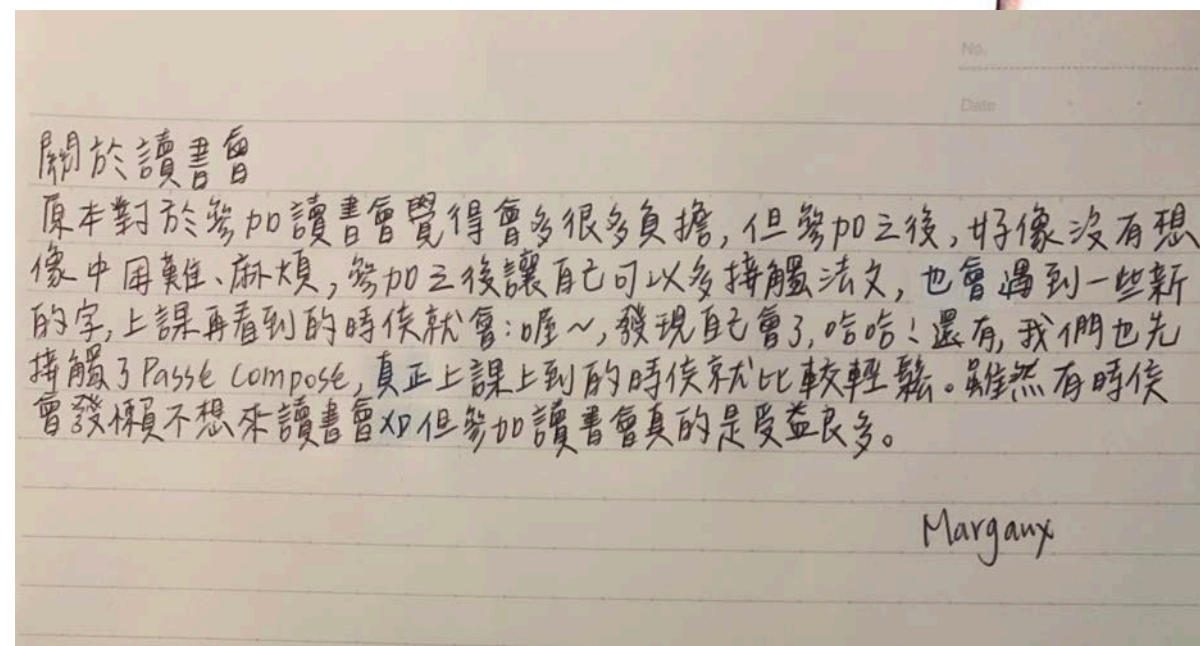 No.
Date
關於讀書會
原本對於參加讀書會覺得會多很多負擔,但參加之後,好像沒有想
像中困難、麻煩,參加之後讓自己可以多接觸法文,也會遇到一些新
的字,上課再看到的時候就會:喔~,發現自己會了,哈哈!還有,我們也先
接觸了Passé composé,真正上課上到的時候就比較輕鬆。雖然有時候
會發懶不想來讀書會XD但參加讀書會真的是受益良多。
Margaux